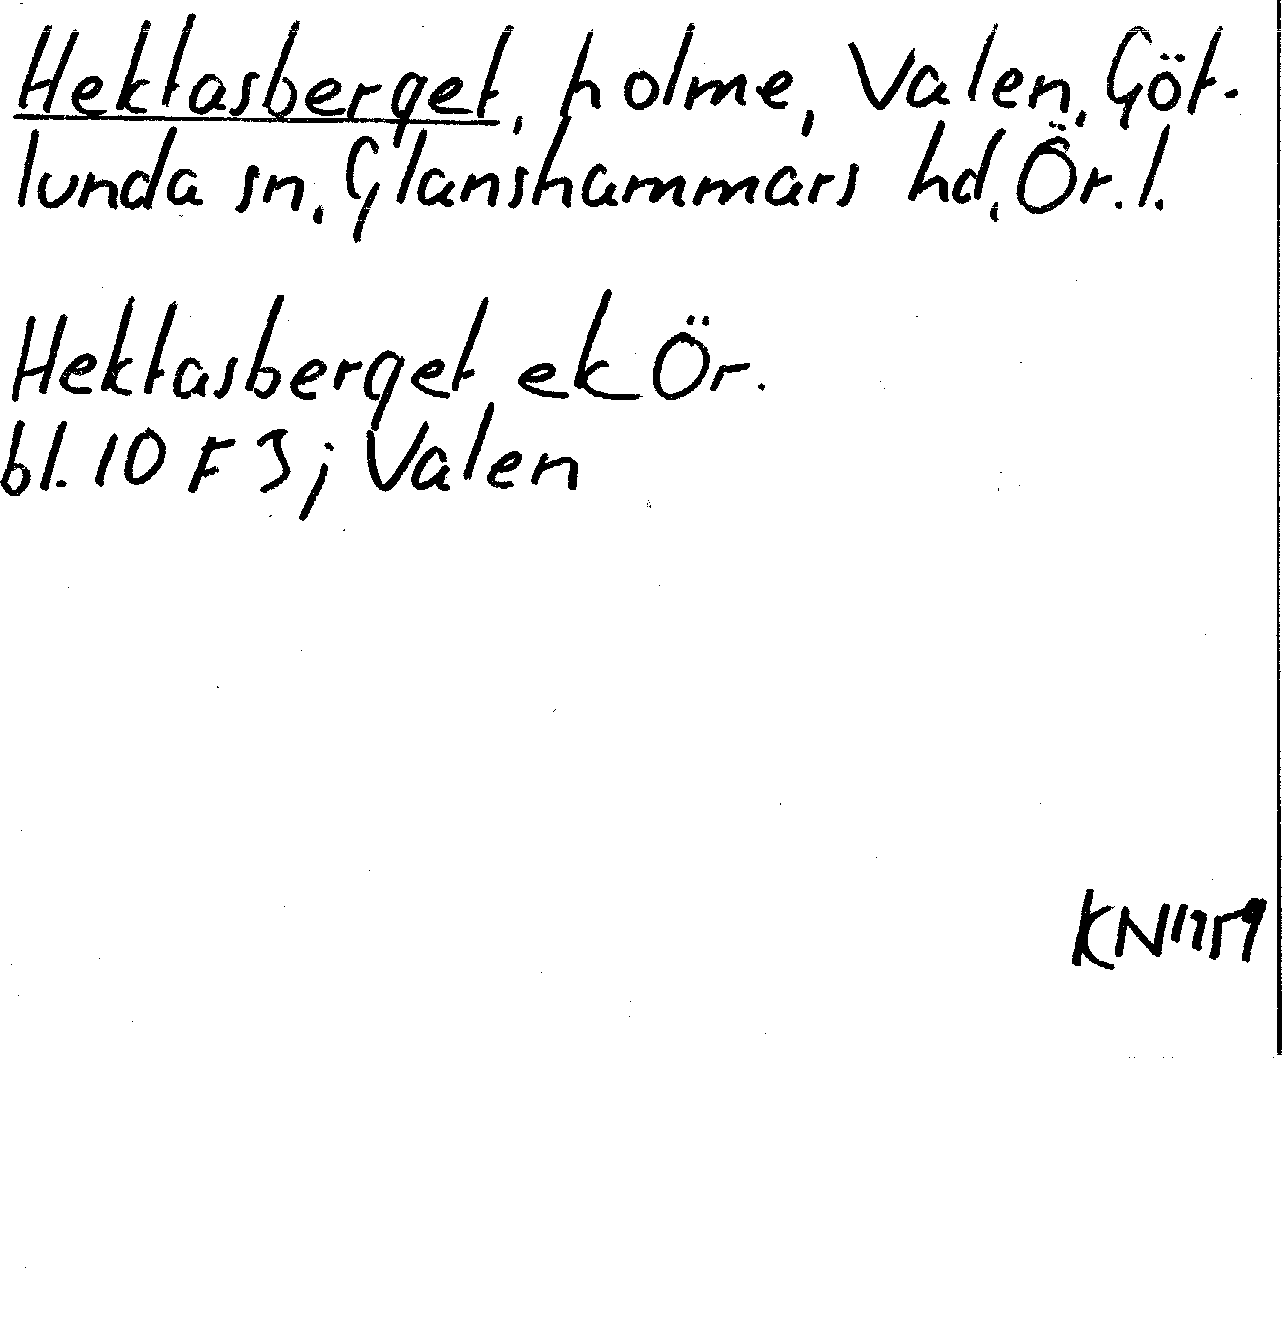 Hektasberget, holme, Valen, Göt-
lunda sn, Glanshammars hd, Ör. l.
Hektasberget ek Ör.
bl. 10 F 3 j Valen